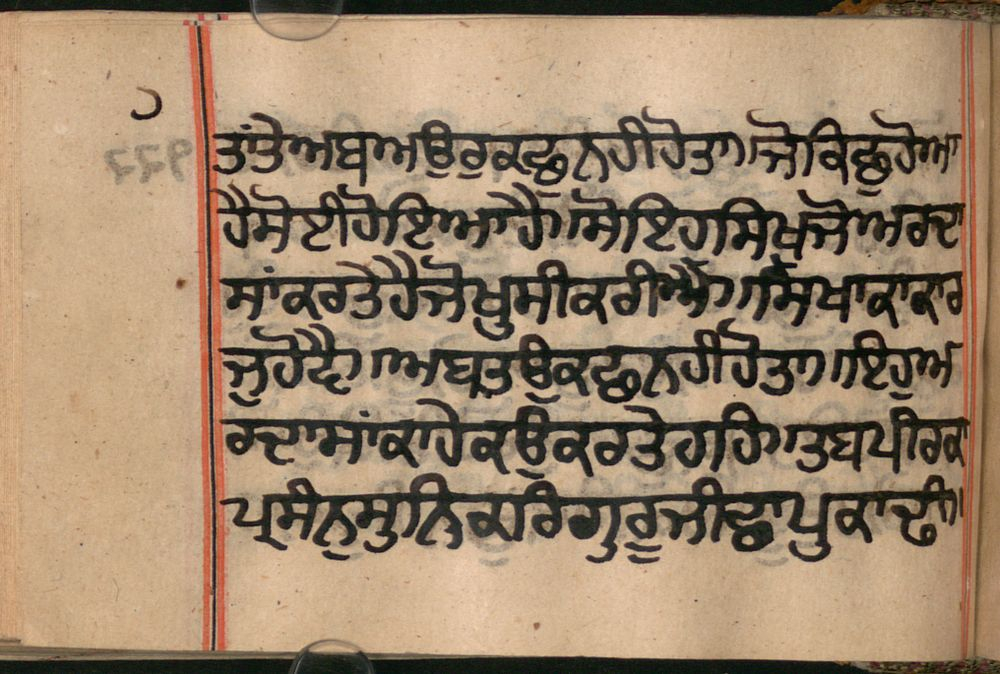 ਤਾਂਤੇਅਬਅਉਰੁਕਛੁਨਹੀਹੋਤਾ॥ਜੋਕਿਛੁਹੋਆ
ਹੈਸੋਈਹੋਇਆਹੈ॥ਸੋਇਹਸਿਖਜੋਅਰਦਾ
ਸਾਂਕਰਤੇਹੈਜੋਖੁਸੀਕਰੀਐ॥ਸਿਖਾਕਾਕਾਰ
ਜੁਹੋਦੈ॥ਅਬਤਉਕਛੁਨਹੀਹੋਤਾ॥ਇਹੁਅ
ਰਦਾਸਾਂਕਾਹੇਕਉਕਰਤੇਹਹਿ॥ਤਬਪੀਰਕਾ
ਪ੍ਰਸੰਨੁਸੁਨਿਕਰਿਗੁਰੂਜੀਛਾਪੁਕਾਢੀ॥